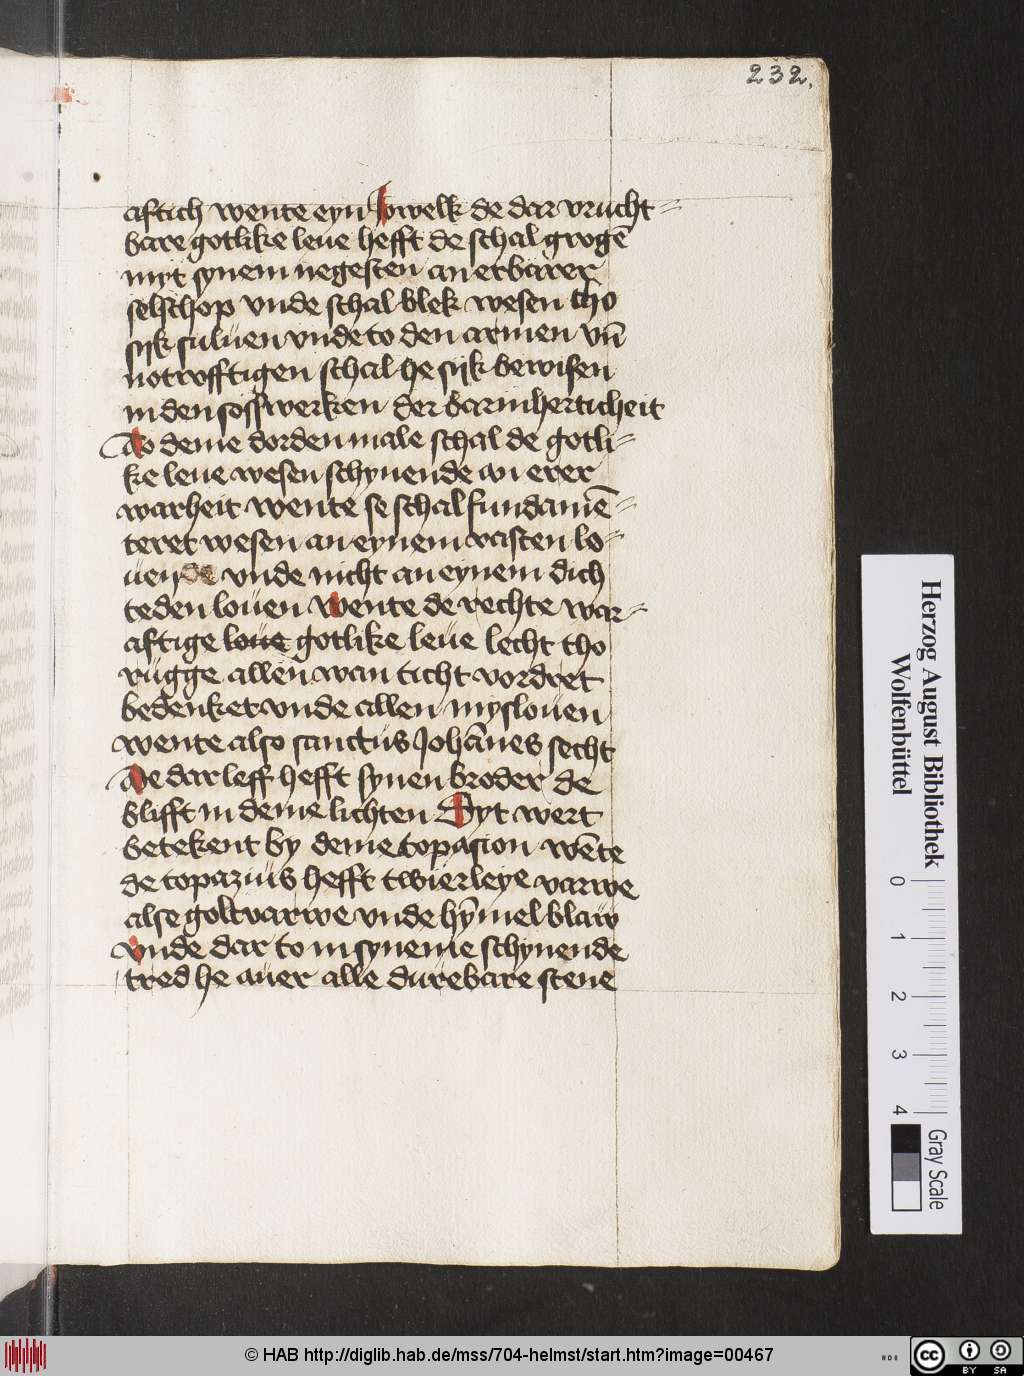 232.
aftich wente eyn Jowelk de dar vrucht=
bare gotlike leue hefft de schal grogē
myt synem negesten an erbarer
selschop vnde schal blek wesen tho
sijk suluen vnde to den armen vn̄
notrofftigen schal he sijk bewisen
in den soss werken der barmherticheit
To deme dorden male schal de gotli=
ke leue wesen schynende an erer
warheit wente se schal fundamē=
teret wesen an eynem vasten lo=
uen de vnde nicht an eynem dich
teden louen Wente de rechte war=
aftige loue gotlike leue lecht tho
rugge allen wan ticht vordret
bedenket vnde allen mysloüen
wente also sanctus Johānes secht
De dar leff hefft synen broder de
blifft in deme lichten Dyt wert
betekent by deme topasion wēte
de topazius hefft twierleye varwe
alse goltvarwe vnde hȳmel blaw
vnde dar to in syneme schynende
tred he auer alle durebare stene
Herzog August Bibliothek
Wolfenbüttel
0 1 2 3 4
Gray Scale
© HAB http://diglib.hab.de/mss/704-helmst/start.htm?image=00467
cc BY SA